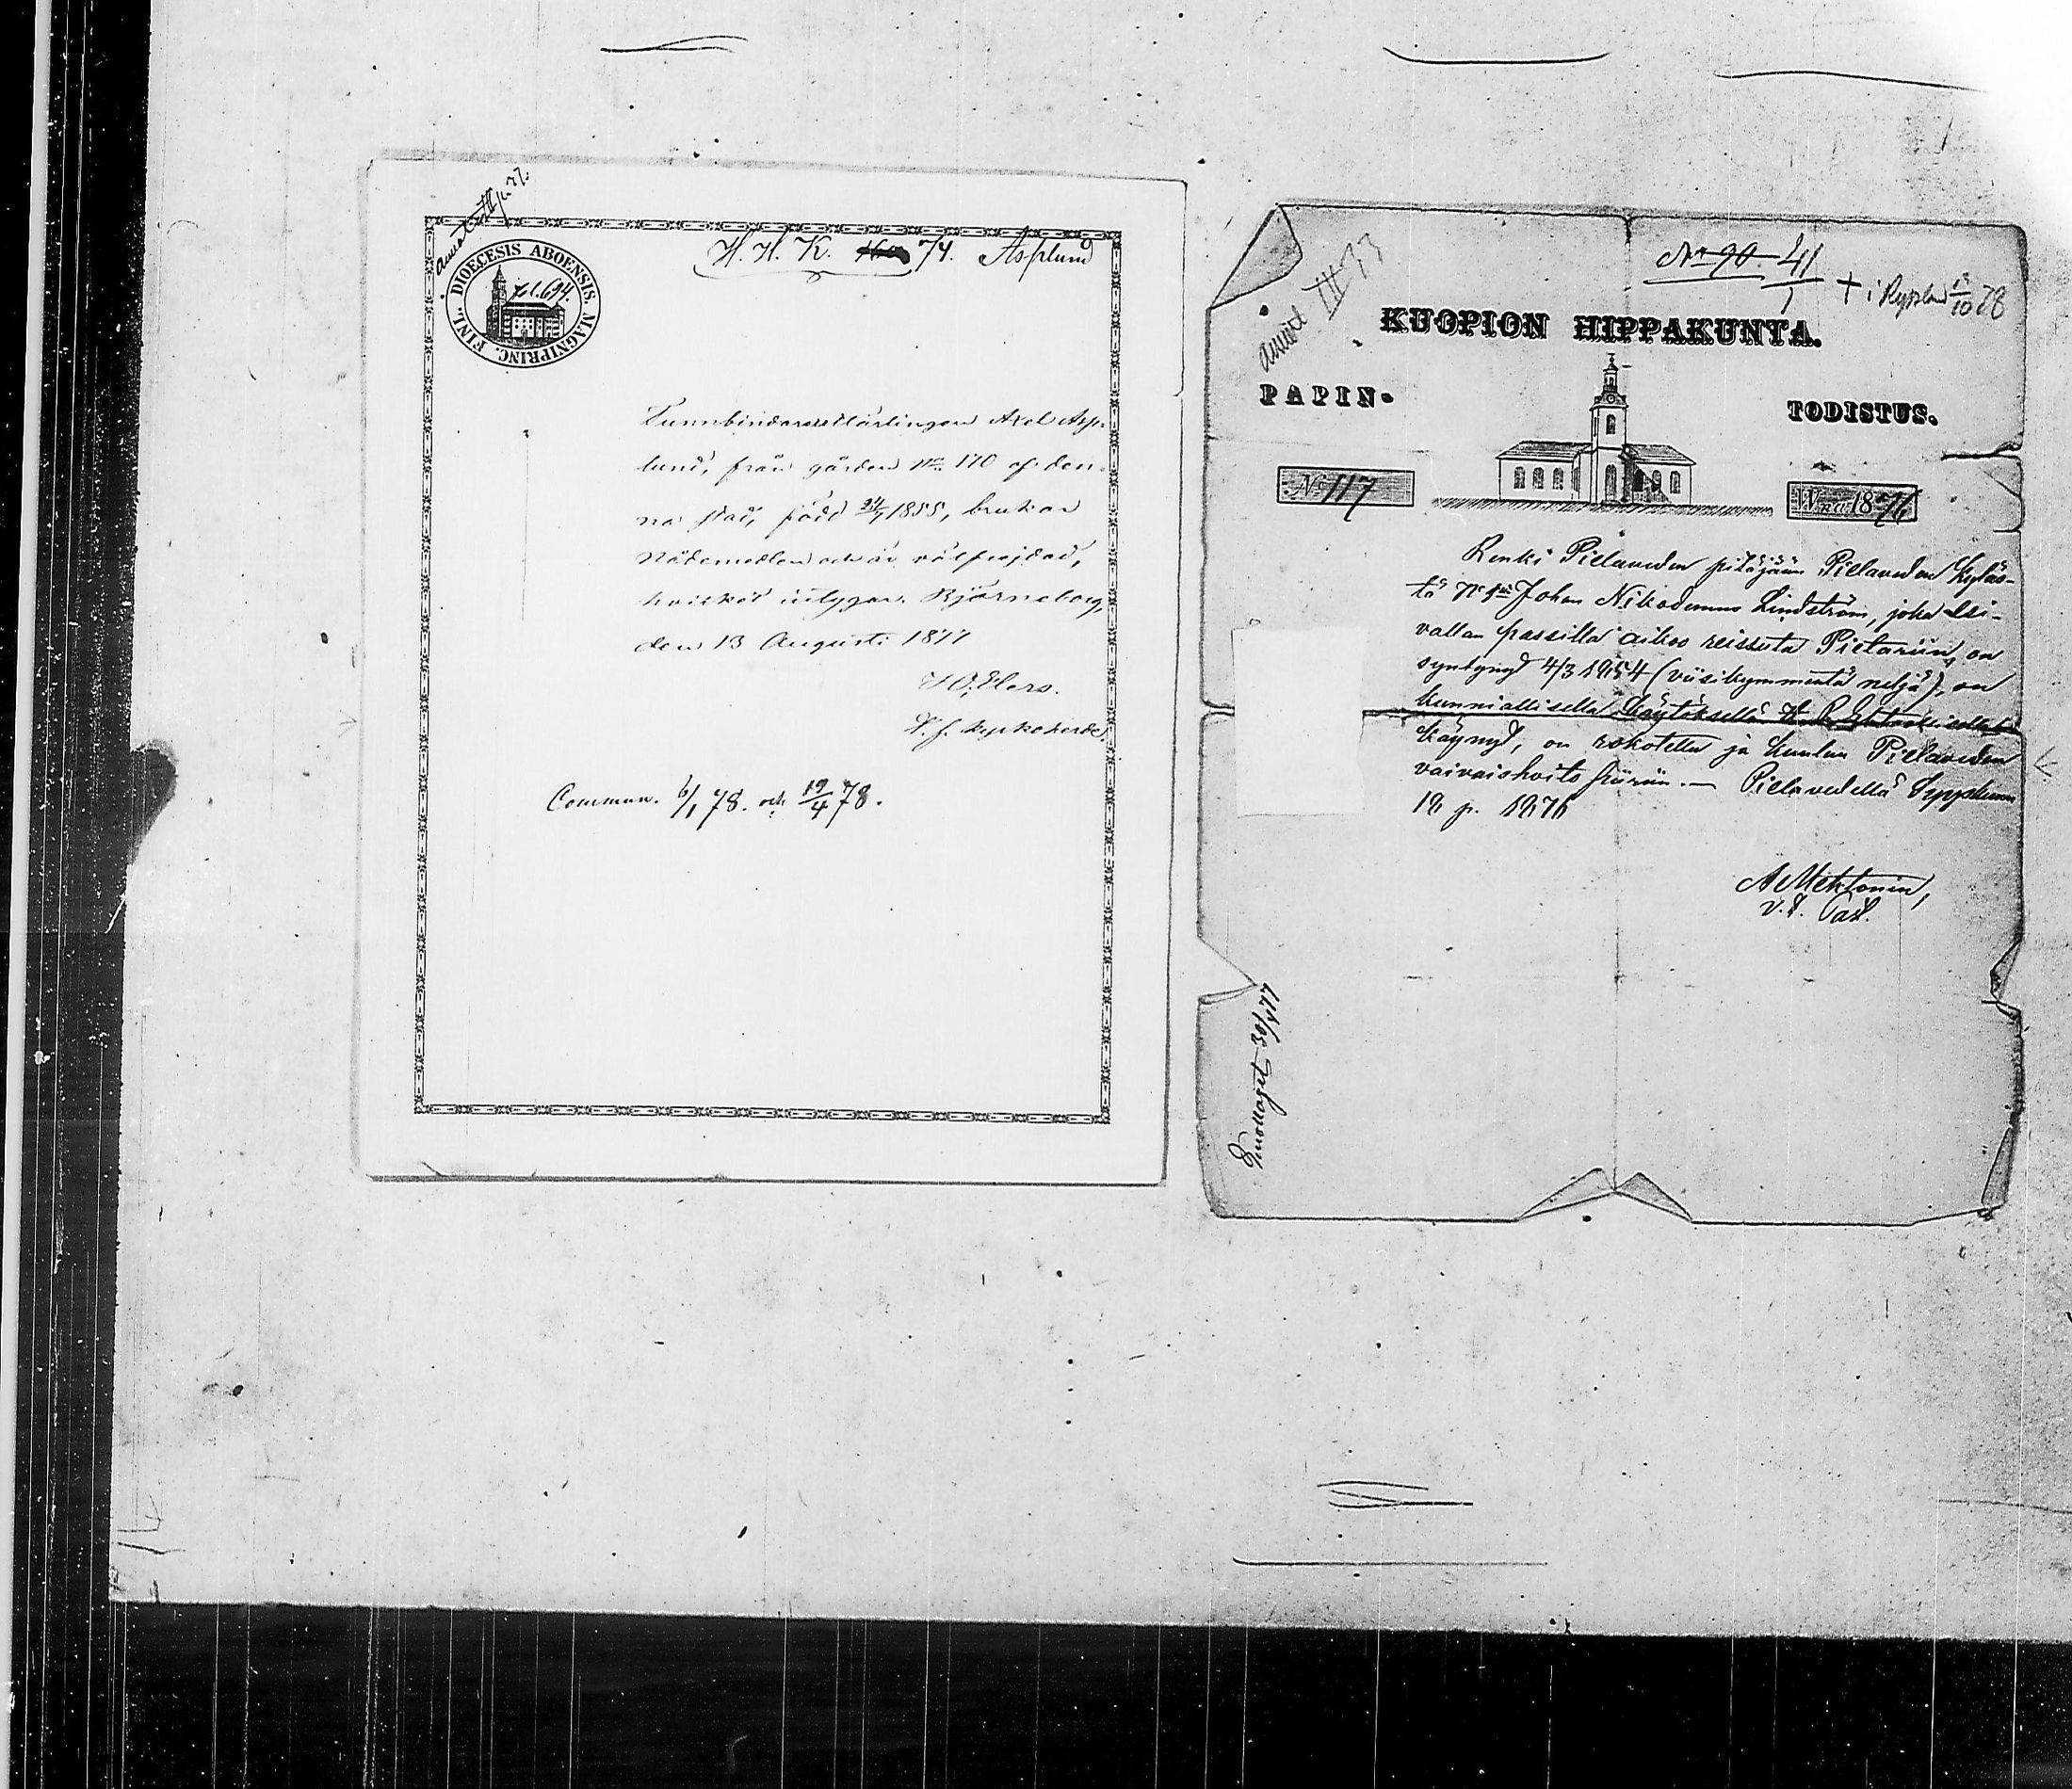 H. H. K. 74. Asplund
DIOECESIS ABOENSIS. MAGNIPRINC. FINL.
fol. 694.
Tunnbindarelärlingen Axel Asp-
lund, från gården No. 170 af den-
na stad, född 24/7 1855, brukar
Nådemedlen och är välfrejdad,
hvilket intygar. Björneborg,
den 13 Augusti 1877
Elers.
V. f. kyrkoherde.
Commun. 6/1 78. och 19/4 78.
No 90 41
1
+ i Ryssland 10 78
annot III 33
KUOPION HIPPAKUNTA.
PAPIN-
TODISTUS.
No 117
Wna 1876
Renki Pielaveden pitäjään Pielaveden kyläs-
tä No Johan Nikodemus Lindström, joka esi-
vallan passilla aikoo reissuta Pietariin, on
syntynyt 4/3 1854 (viisikymmentä neljä), on
kunniallisella käytöksellä H. P. Ehtoollisella
käynyt, on rokotettu ja kuuluu Pielaveden
vaivaishoito piiriin. — Pielavedellä Syyskuun
18 p. 1876
A Mehtonen,
v. t. Past.
Emottaget 30/4 77